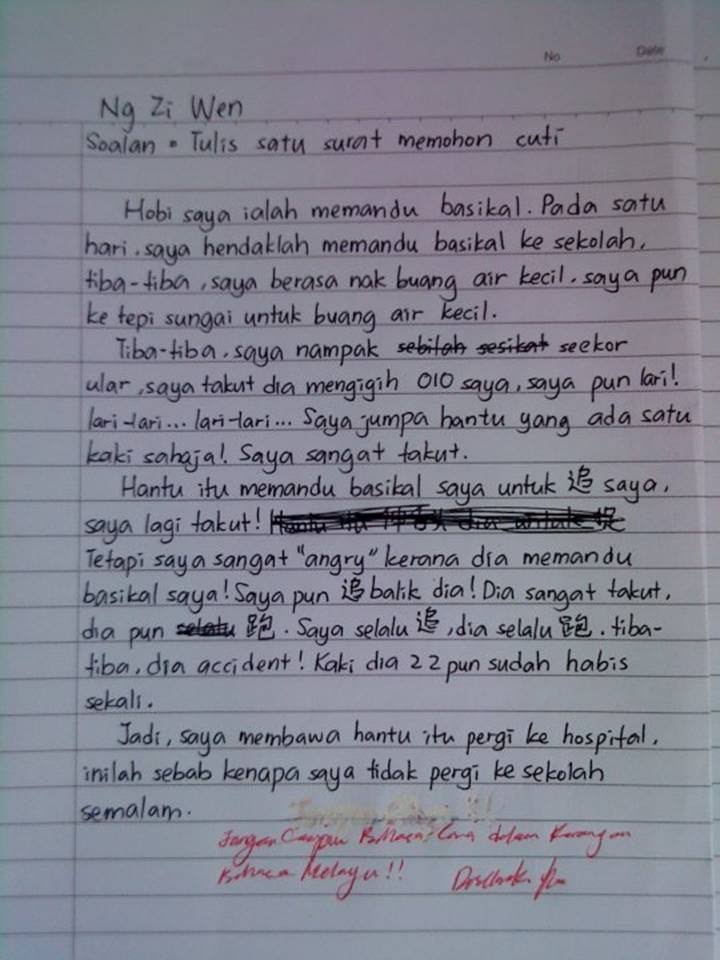 No
Date
Ng Zi Wen
Soalan = Tulis satu surat memohon cuti
Hobi saya ialah memandu basikal. Pada satu
hari, saya hendaklah memandu basikal ke sekolah,
tiba-tiba, saya berasa nak buang air kecil. saya pun
ke tepi sungai untuk buang air kecil.
Tiba-tiba, saya nampak sebilah sesikat seekor
ular, saya takut dia mengigih 010 saya, saya pun lari!
lari-lari... lari-lari... Saya jumpa hantu yang ada satu
kaki sahaja! Saya sangat takut.
Hantu itu memandu basikal saya untuk 追 saya,
saya lagi takut!
Tetapi saya sangat "angry" kerana dia memandu
basikal saya! Saya pun 追 balik dia! Dia sangat takut,
dia pun 跑. Saya selalu 追, dia selalu 跑. tiba-
tiba, dia accident! Kaki dia 22 pun sudah habis
sekali.
Jadi, saya membawa hantu itu pergi ke hospital,
inilah sebab kenapa saya tidak pergi ke sekolah
semalam.
Jangan Campur Bahasa Cina dalam Karangan
Bahasa Melayu!!